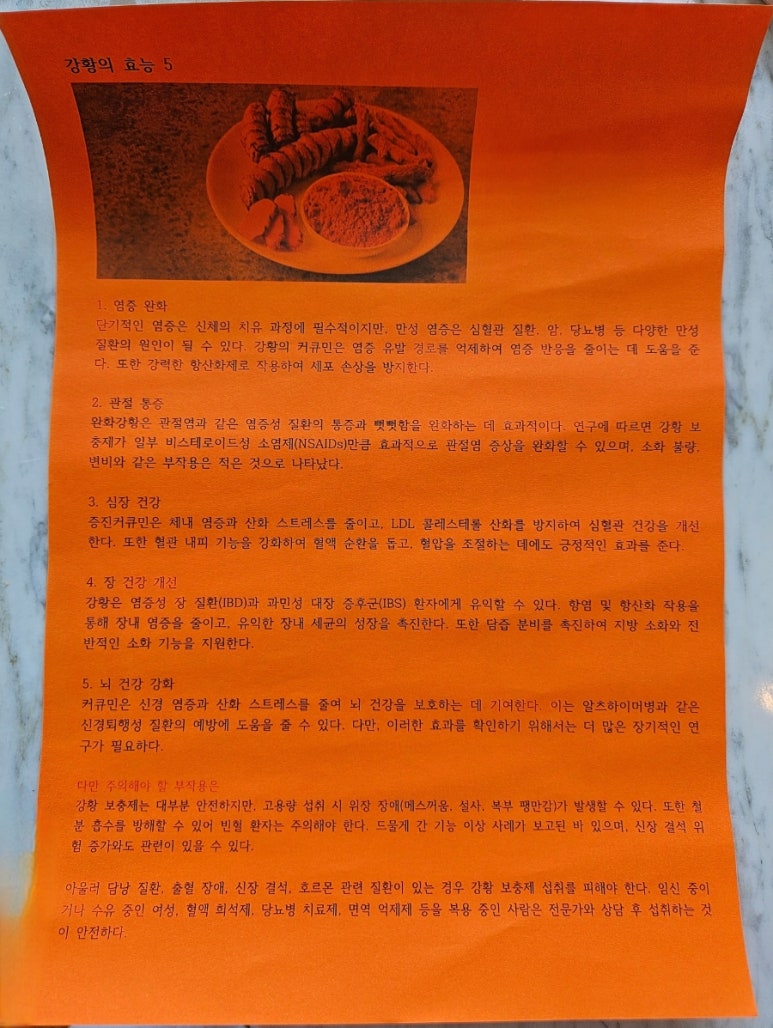 강황의 효능 5
1. 염증 완화
단기적인 염증은 신체의 치유 과정에 필수적이지만, 만성 염증은 심혈관 질환, 암, 당뇨병 등 다양한 만성
질환의 원인이 될 수 있다. 강황의 커큐민은 염증 유발 경로를 억제하여 염증 반응을 줄이는 데 도움을 준
다. 또한 강력한 항산화제로 작용하여 세포 손상을 방지한다.
2. 관절 통증
완화강황은 관절염과 같은 염증성 질환의 통증과 뻣뻣함을 완화하는 데 효과적이다. 연구에 따르면 강황 보
충제가 일부 비스테로이드성 소염제(NSAIDs)만큼 효과적으로 관절염 증상을 완화할 수 있으며, 소화 불량,
변비와 같은 부작용은 적은 것으로 나타났다.
3. 심장 건강
증진커큐민은 체내 염증과 산화 스트레스를 줄이고, LDL 콜레스테롤 산화를 방지하여 심혈관 건강을 개선
한다. 또한 혈관 내피 기능을 강화하여 혈액 순환을 돕고, 혈압을 조절하는 데에도 긍정적인 효과를 준다.
4. 장 건강 개선
강황은 염증성 장 질환(IBD)과 과민성 대장 증후군(IBS) 환자에게 유익할 수 있다. 항염 및 항산화 작용을
통해 장내 염증을 줄이고, 유익한 장내 세균의 성장을 촉진한다. 또한 담즙 분비를 촉진하여 지방 소화와 전
반적인 소화 기능을 지원한다.
5. 뇌 건강 강화
커큐민은 신경 염증과 산화 스트레스를 줄여 뇌 건강을 보호하는 데 기여한다. 이는 알츠하이머병과 같은
신경퇴행성 질환의 예방에 도움을 줄 수 있다. 다만, 이러한 효과를 확인하기 위해서는 더 많은 장기적인 연
구가 필요하다.
다만 주의해야 할 부작용은
강황 보충제는 대부분 안전하지만, 고용량 섭취 시 위장 장애(메스꺼움, 설사, 복부 팽만감)가 발생할 수 있다. 또한 철
분 흡수를 방해할 수 있어 빈혈 환자는 주의해야 한다. 드물게 간 기능 이상 사례가 보고된 바 있으며, 신장 결석 위
험 증가와도 관련이 있을 수 있다.
아울러 담낭 질환, 출혈 장애, 신장 결석, 호르몬 관련 질환이 있는 경우 강황 보충제 섭취를 피해야 한다. 임신 중이
거나 수유 중인 여성, 혈액 희석제, 당뇨병 치료제, 면역 억제제 등을 복용 중인 사람은 전문가와 상담 후 섭취하는 것
이 안전하다.